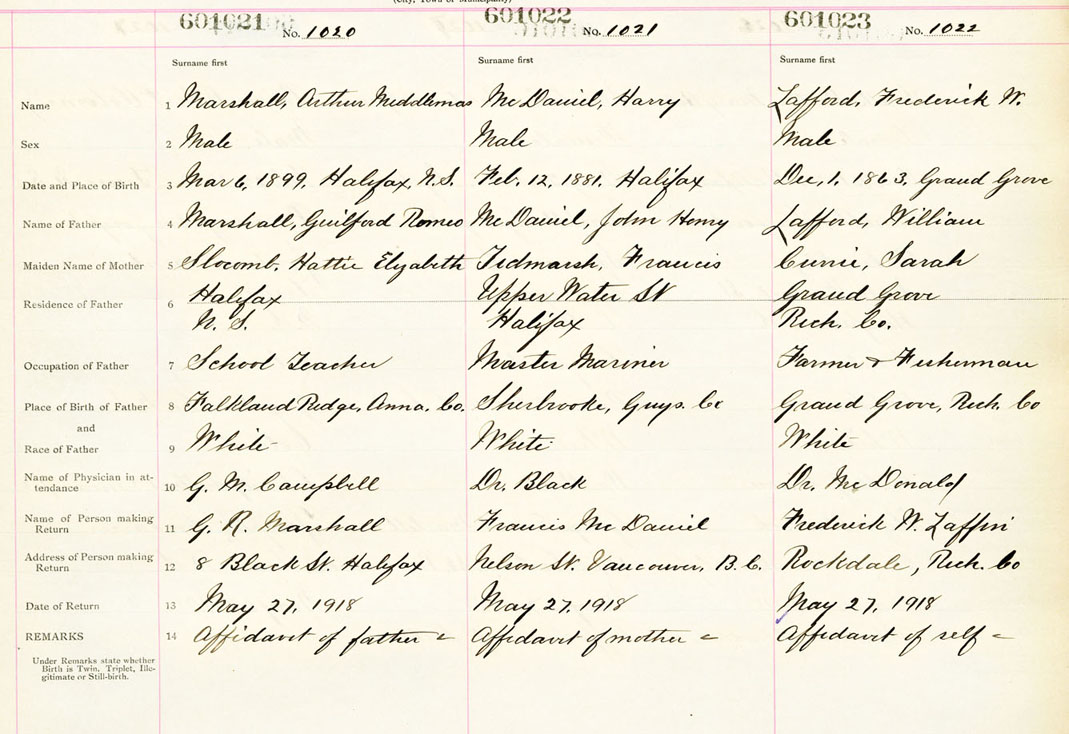 (City, Town or Municipality)
601021 No. 1020 601022 No. 1021 601023 No. 1022
Surname first Surname first Surname first
Name 1 Marshall, Arthur Middlemas McDaniel, Harry Lafford, Frederick W.
Sex 2 Male Male Male
Date and Place of Birth 3 Mar 6, 1899, Halifax, N.S. Feb. 12, 1881, Halifax Dec, 1, 1863, Grand Grove
Name of Father 4 Marshall, Guilford Romeo McDaniel, John Henry Lafford, William
Maiden Name of Mother 5 Slocomb, Hattie Elizabeth Tidmarsh, Francis Currie, Sarah
Residence of Father 6 Halifax Upper Water St Grand Grove
N. S. Halifax Rich. Co.
Occupation of Father 7 School Teacher Master Mariner Farmer & Fisherman
Place of Birth of Father 8 Falkland Ridge, Anna. Co. Sherbrooke, Guys. Co Grand Grove, Rich. Co
and
Race of Father 9 White White White
Name of Physician in at-
tendance 10 G. M. Campbell Dr. Black Dr. McDonald
Name of Person making
Return 11 G. R. Marshall Francis McDaniel Frederick W. Laffin
Address of Person making
Return 12 8 Black St. Halifax Nelson St. Vancouver, B.C. Rockdale, Rich. Co
Date of Return 13 May 27, 1918 May 27, 1918 May 27, 1918
REMARKS 14 Affidavit of father Affidavit of mother Affidavit of self
Under Remarks state whether
Birth is Twin, Triplet, Ille-
gitimate or Still-birth.